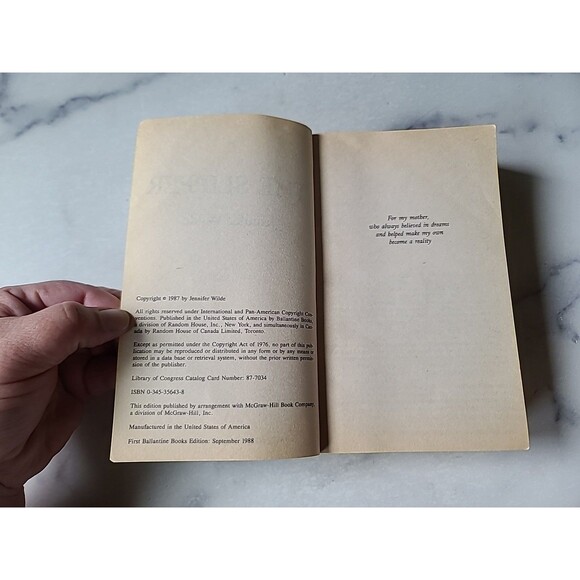 Copyright © 1987 by Jennifer Wilde
All rights reserved under International and Pan-American Copyright Con-
ventions. Published in the United States of America by Ballantine Books,
a division of Random House, Inc., New York, and simultaneously in Can-
ada by Random House of Canada Limited, Toronto.
Except as permitted under the Copyright Act of 1976, no part of this pub-
lication may be reproduced or distributed in any form or by any means or
stored in a data base or retrieval system, without the prior written permis-
sion of the publisher.
Library of Congress Catalog Card Number: 87-7034
ISBN 0-345-35643-8
This edition published by arrangement with McGraw-Hill Book Company,
a division of McGraw-Hill, Inc.
Manufactured in the United States of America
First Ballantine Books Edition: September 1988
For my mother,
who always believed in dreams
and helped make my own
become a reality